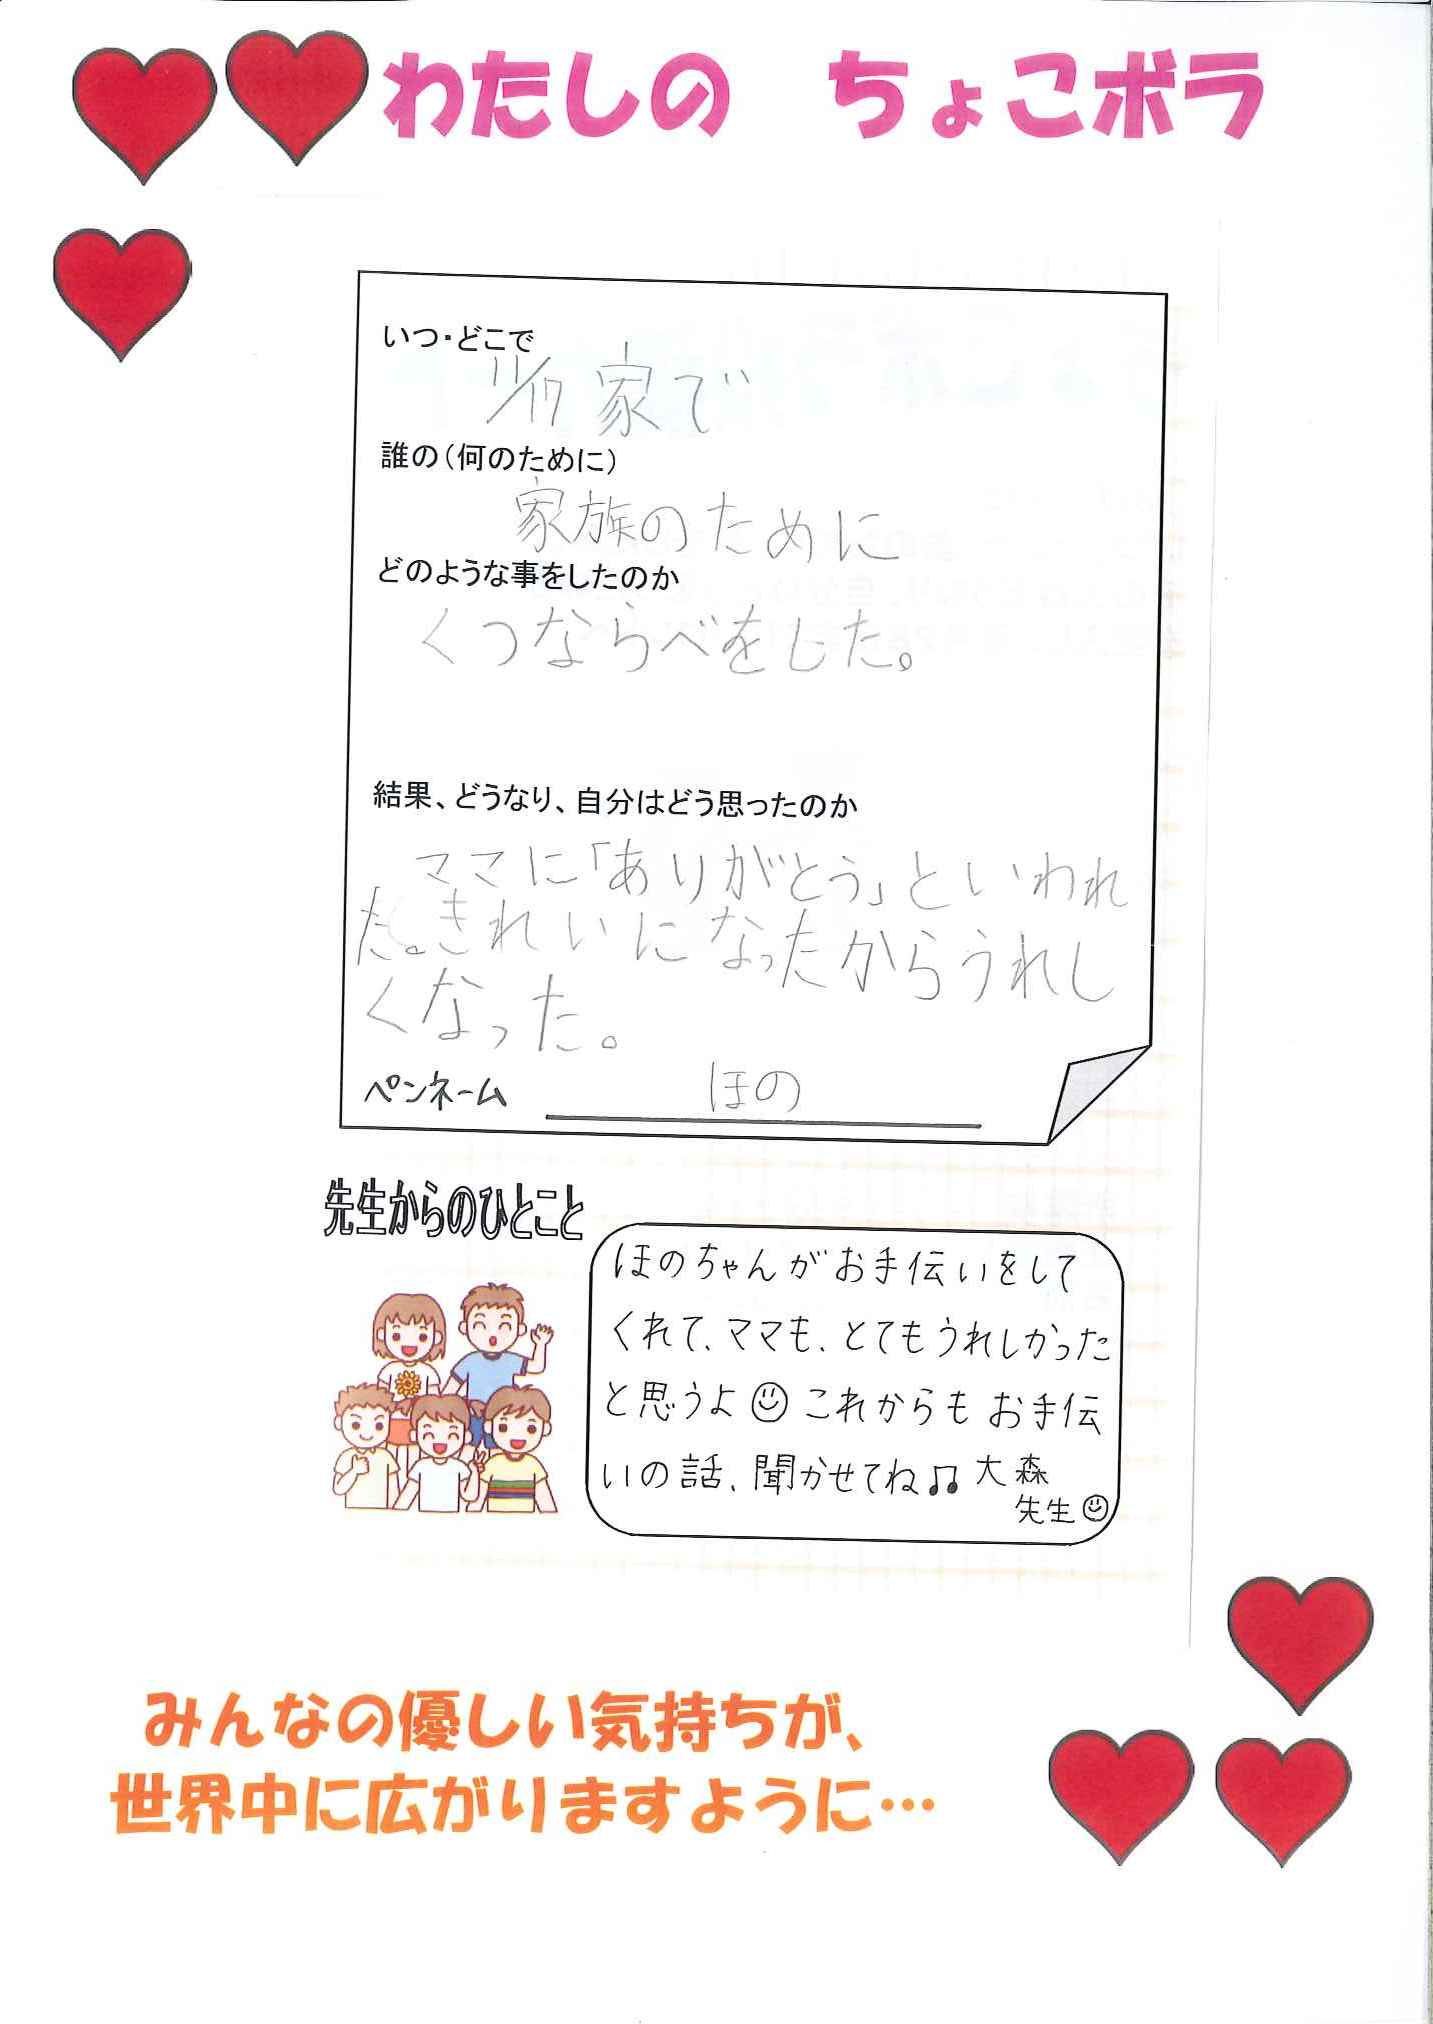 わたしの ちょこボラ
いつ・どこで
11/17 家で
誰の(何のために)
家族のために
どのような事をしたのか
くつならべをした。
結果、どうなり、自分はどう思ったのか
ママに「ありがとう」といわれ
た。きれいになったからうれし
くなった。
ペンネーム ほの
先生からのひとこと
ほのちゃんがお手伝いをして
くれて、ママも、とてもうれしかった
と思うよ☺これからもお手伝
いの話、聞かせてね♫大森
先生☺
みんなの優しい気持ちが、
世界中に広がりますように…